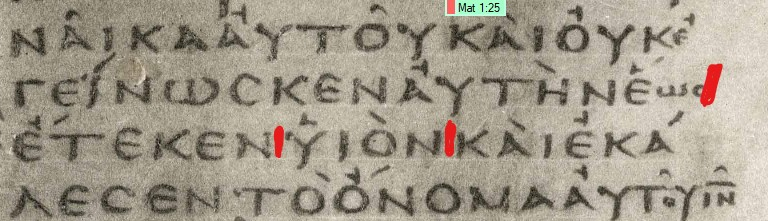 Mat 1:25
ΝΑΙΚΑΑΥΤΟΥΚΑΙΟΥΚΕ
ΓΕΙΝΩϹΚΕΝΑΥΤΗΝΕΩϹ
ΕΤΕΚΕΝΥΙΟΝΚΑΙΕΚΑ
ΛΕϹΕΝΤΟΟΝΟΜΑΑΥΤΟΥΙΝ̅